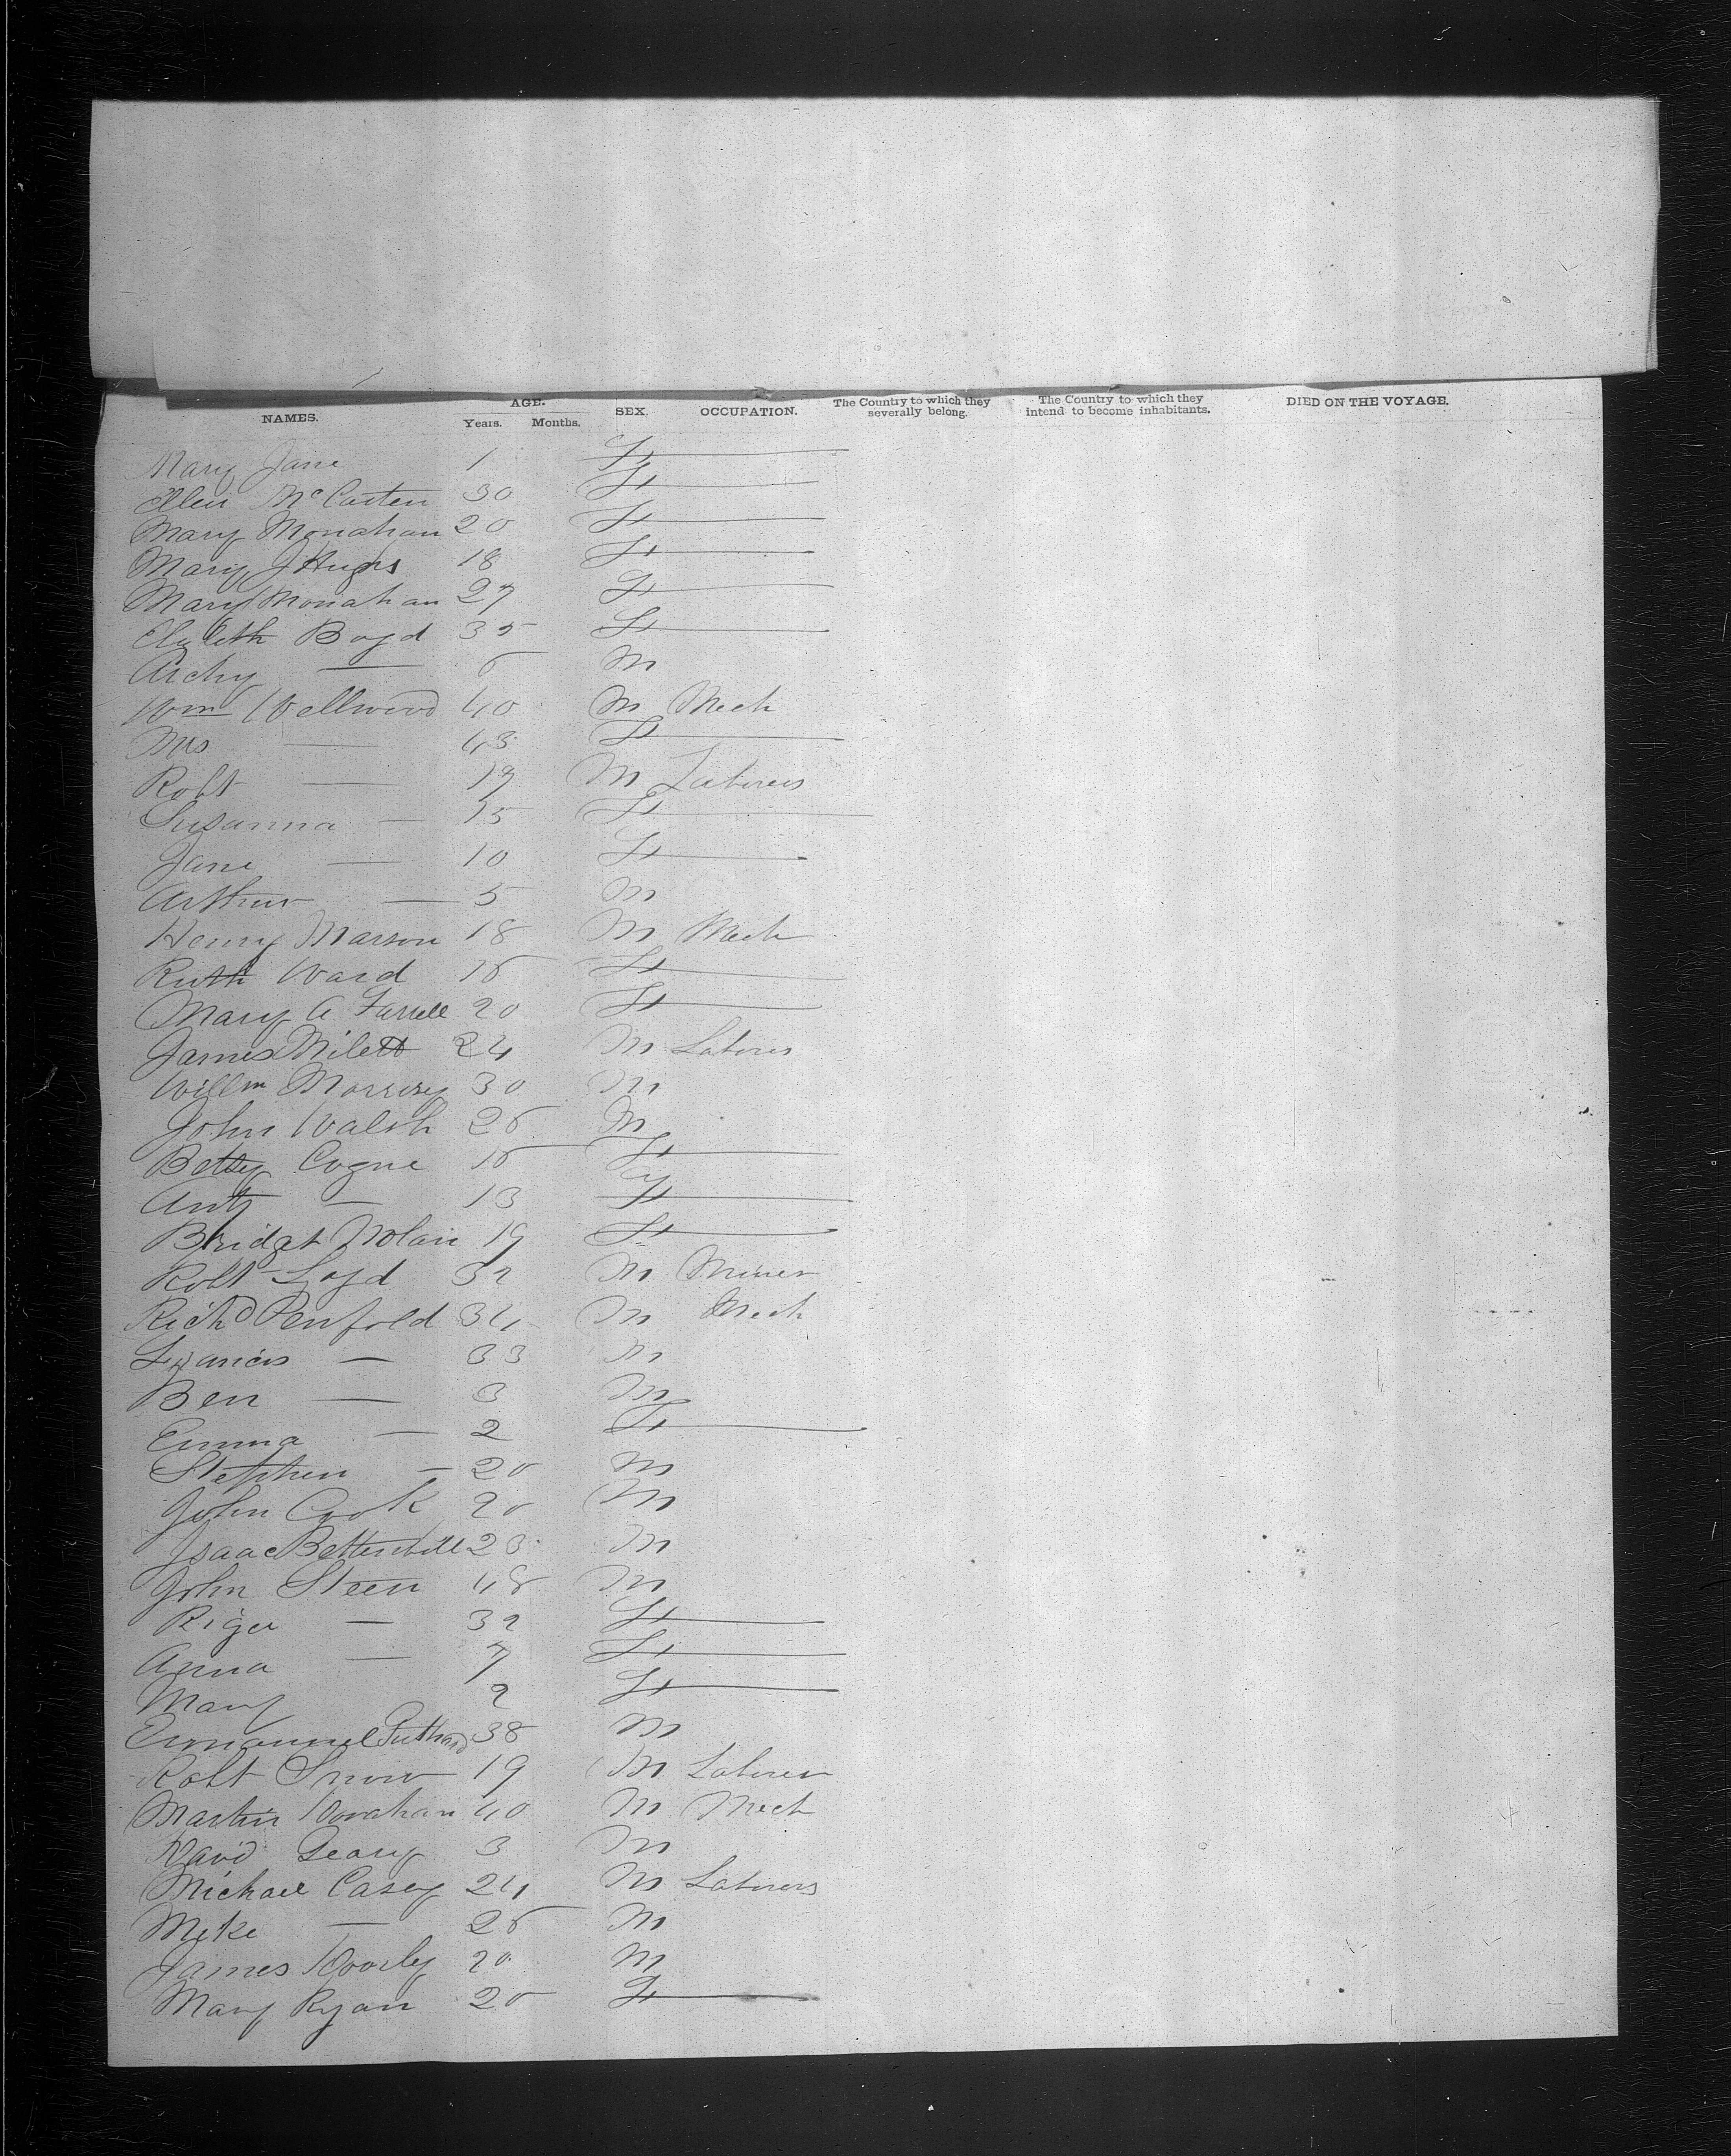 NAMES. AGE. Years. Months. SEX. OCCUPATION. The Country to which they severally belong. The Country to which they intend to become inhabitants. DIED ON THE VOYAGE.
Mary Jane 1 F
Ellen McCarten 30 F
Mary Monahan 20 F
Mary J Hughs 18 F
Mary Monahan 27 F
Elizbeth Boyd 35 F
Archy — M
Wm Wellwood 40 M Mech
Mrs — 43 F
Robt — 19 M Laborers
Susanna — 15 F
Jane — 10 F
Arthur — 5 M
Henry Marson 18 M Mech
Ruth Ward F
Mary A Farrell 20 F
James Milett 24 M Laborer
Willm Morrisy 30 M
John Walsh M
Betsy Cogne F
— 13 F
Bridget Nolan 19 F
Robt Loyd 32 M Miner
Richd Penfold 34 M Mech
Francis — 33 M
Ben — 3 M
Emma — 2 F
Stephen — 20 M
John Cook 20 M
Isaac 23 M
John Steen 48 M
— 32 F
Anna — 7 F
Mary 2 F
Emanuel 38 M
Robt Snow 19 M Laborer
Martin Donahan 40 M Mech
David Geary 3 M
Michael Casey 24 M Laborers
Mike — M
James 20 M
Mary Ryan 20 F